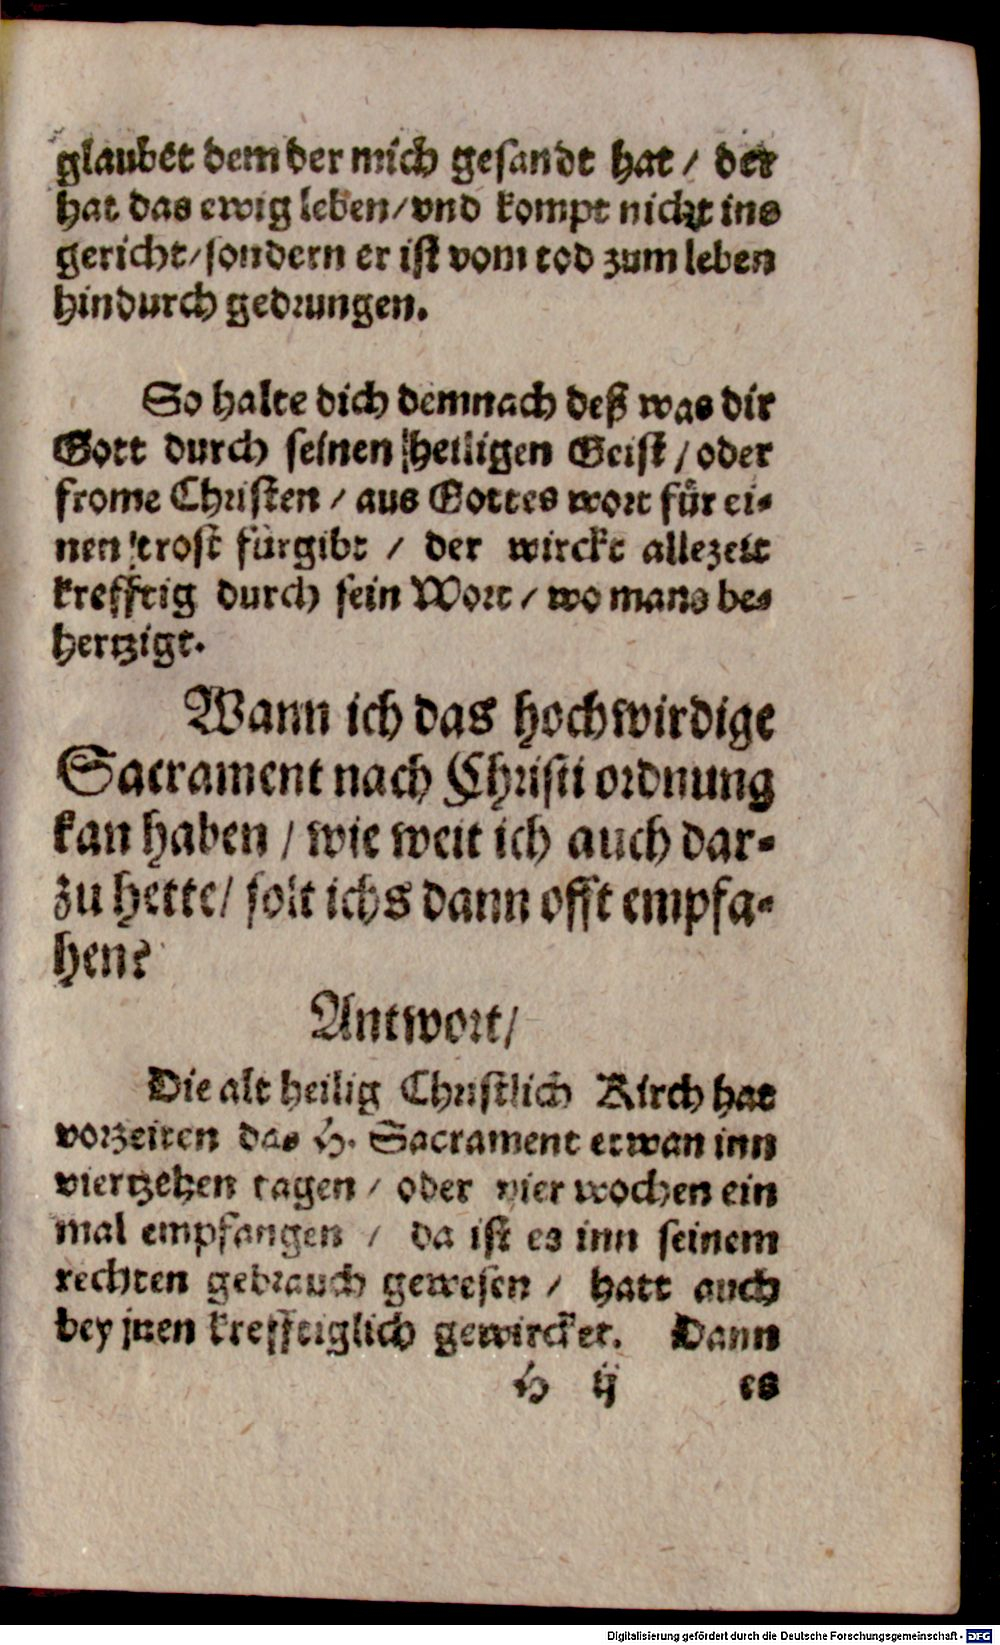 glaubet dem der mich gesandt hat / der
hat das ewig leben/vnd kompt nicht ins
gericht/sondern er ist vom tod zum leben
hindurch gedrungen.
So halte dich demnach deß was dir
Gott durch seinen heiligen Geist / oder
frome Christen / aus Gottes wort für ei-
nen trost fürgibt / der wirckt allezeit
krefftig durch sein Wort / wo mans be-
hertzigt.
Wann ich das hochwirdige
Sacrament nach Christi ordnung
kan haben / wie weit ich auch dar-
zu hette/ solt ichs dann offt empfa-
hen?
Antwort/
Die alt heilig Christlich Kirch hat
vorzeiten das H. Sacrament etwan inn
viertzehen tagen / oder vier wochen ein
mal empfangen / da ist es inn seinem
rechten gebrauch gewesen / hatt auch
bey jnen krefftiglich gewircket. Dann
H ij es
Digitalisierung gefördert durch die Deutsche Forschungsgemeinschaft - DFG